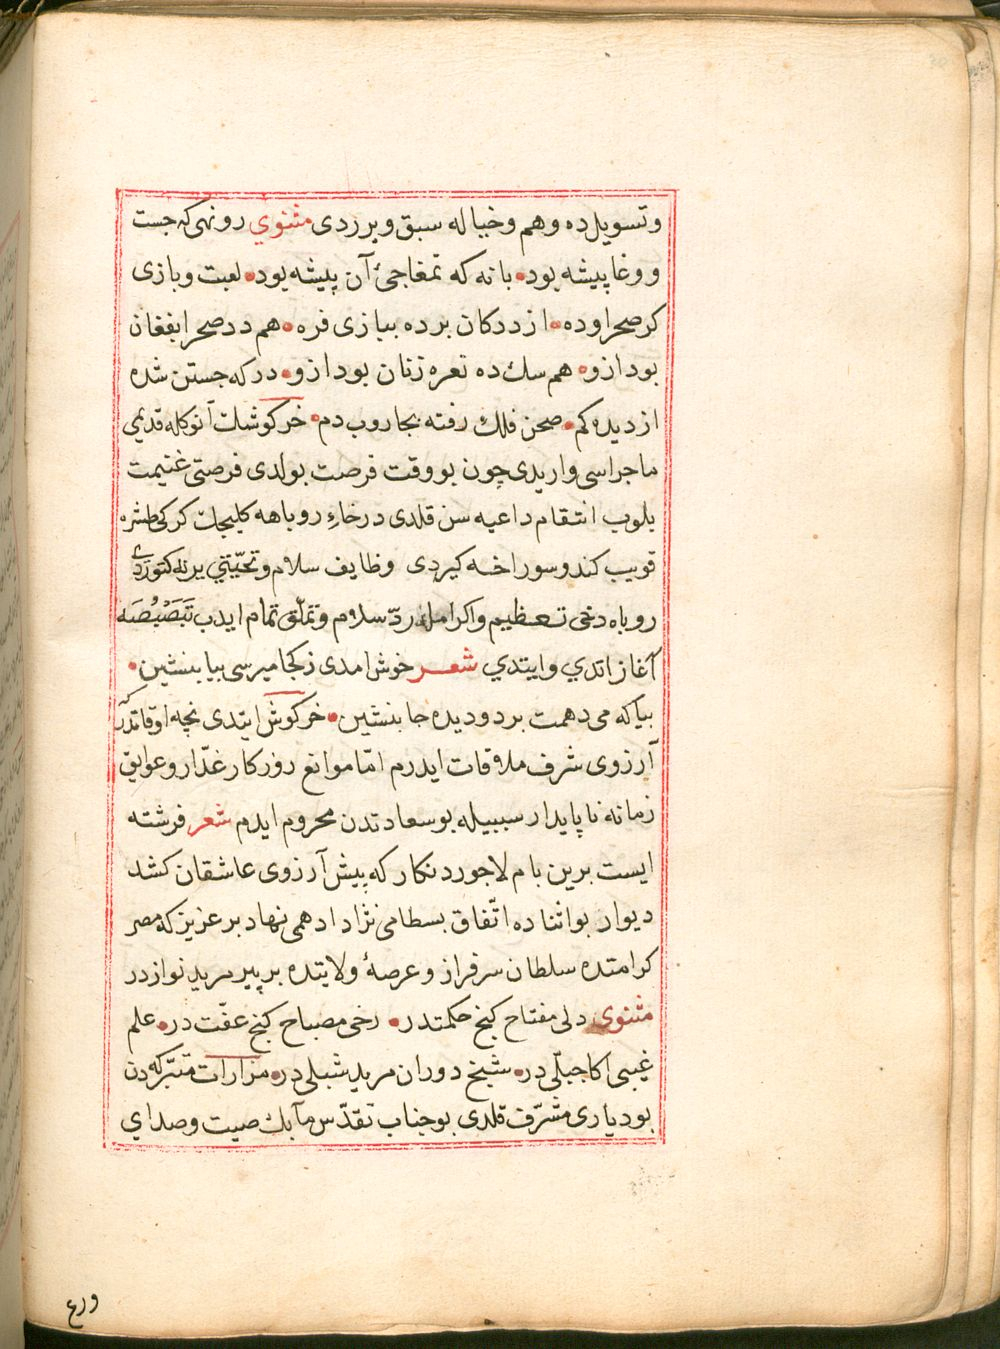 وتسویل‌ده وهم وخیاله سبق ویرردی مثنوي رونهی که جست
ووغا پیشه بود • بانه که تمغاجیٔ آن پیشه بود • لعبت وبازی
کر صحراوده • از ددکان برده ببازی فره • هم دد صحرا بفغان
بود ازو • هم سك ده نعره زنان بود ازو • در که جستن شده
از دیده کم • صحن فلك رفته بجاروب دم • خرکوش انوکله قدیمی
ماجراسی واریدی چون بو وقت فرصت بولدی فرصتی غنیمت
بلوب انتقام داعیه سن قلدی درخاء روباهه کلیجك کرکی طشره
قویب کندو سوراخه کیردی وظایف سلام وتحیّتي یرنه کتوردی
روباه دخی تعظیم واکرامله ردّ سلام وتملّق تمام ایدب تَبَصْبُصَه
آغاز اتدي وایتدي شعر خوش امدی زکجا میرسی بیا بنشین •
بیا که می دهمت بر دو دیده جا بنشین • خرکوش ایتدی نچه اوقاتدر
آرزوی شرف ملاقات ایدرم امّا موانع روزکار غدّار وعوایق
زمانه ناپایدار سببیله بو سعادتدن محروم ایدم شعر فرشته
ایست برین بام لاجورد نکار که پیش آرزوی عاشقان کشد
دیوار بو اثناده اتّفاق بسطامی نژاد ادهمی نهاد بر عزیز که مصر
کرامتده سلطان سرفراز وعرصهٔ ولایتده بر پیر مرید نوازدر
مثنوی دلی مفتاح کنج حکمتدر • رخی مصباح کنج عفّت در • علم
غیبی اکا جبلّی در • شیخ دوران مرید شبلی در • مزارات متبّرکه دن
بو دیاری مشرّف قلدی بو جناب تقدّس مآبك صیت وصدای
ورع